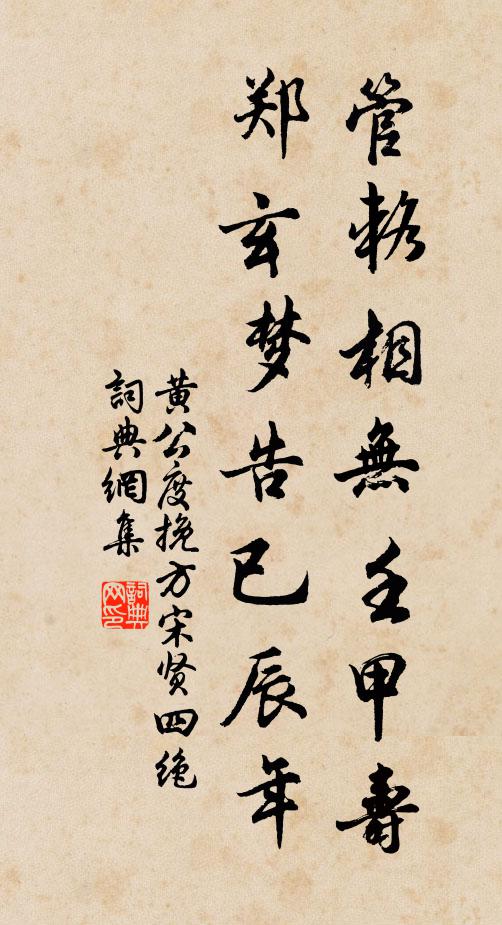 管輅相無壬甲壽
郑玄梦告巳辰年
黄公度挽方宋贤四绝
詞典網集
詞典网印